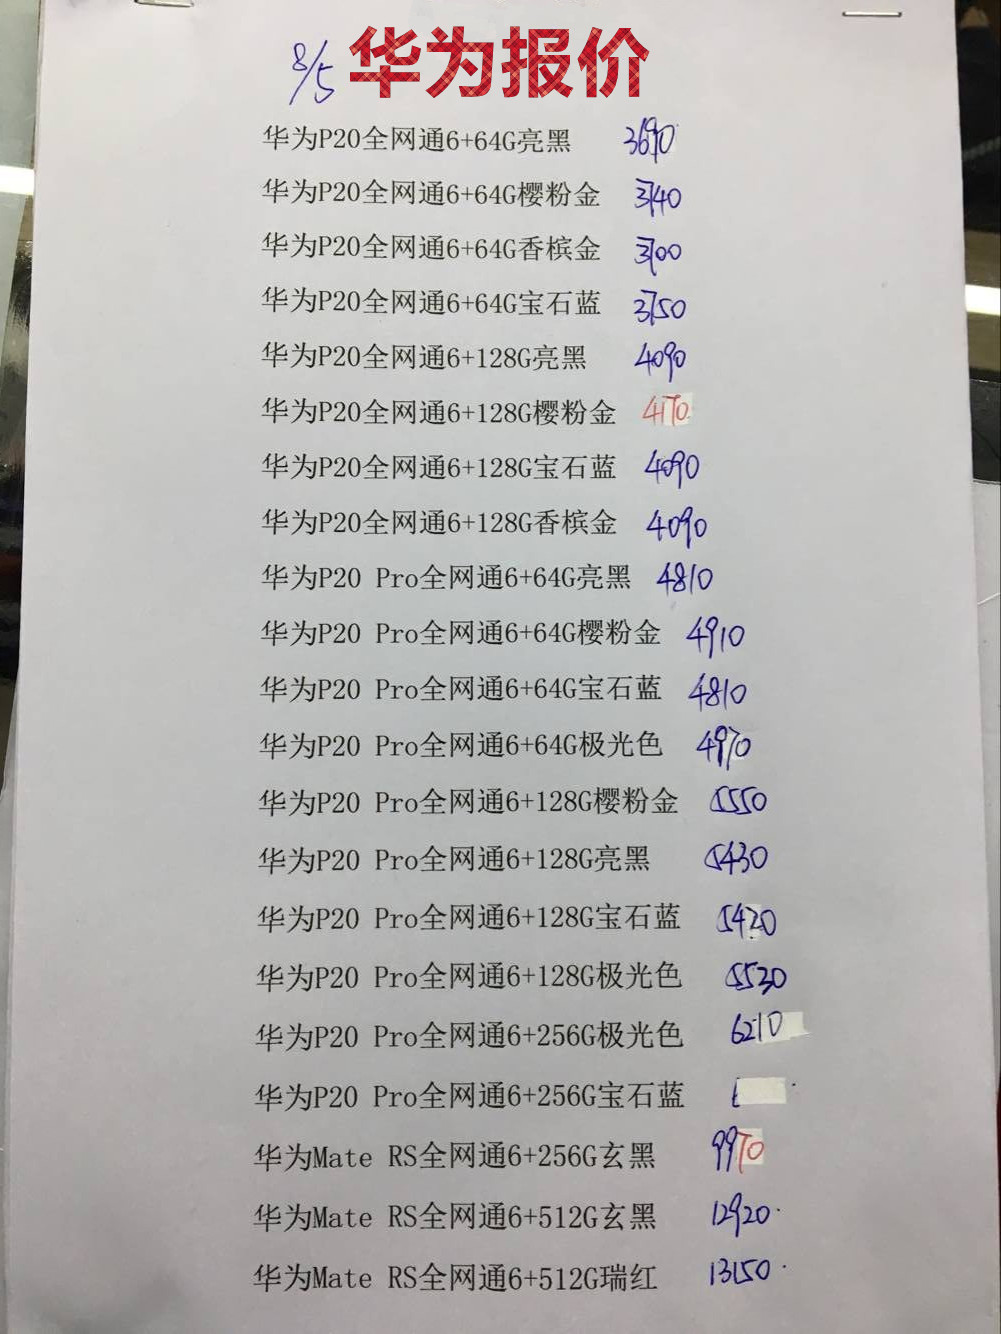 8/5 华为报价
华为P20全网通6+64G亮黑 3690
华为P20全网通6+64G樱粉金 3740
华为P20全网通6+64G香槟金 3700
华为P20全网通6+64G宝石蓝 3750
华为P20全网通6+128G亮黑 4090
华为P20全网通6+128G樱粉金 4170
华为P20全网通6+128G宝石蓝 4090
华为P20全网通6+128G香槟金 4090
华为P20 Pro全网通6+64G亮黑 4810
华为P20 Pro全网通6+64G樱粉金 4910
华为P20 Pro全网通6+64G宝石蓝 4810
华为P20 Pro全网通6+64G极光色 4970
华为P20 Pro全网通6+128G樱粉金 5550
华为P20 Pro全网通6+128G亮黑 5430
华为P20 Pro全网通6+128G宝石蓝 5420
华为P20 Pro全网通6+128G极光色 5530
华为P20 Pro全网通6+256G极光色 6210
华为P20 Pro全网通6+256G宝石蓝
华为Mate RS全网通6+256G玄黑 9970
华为Mate RS全网通6+512G玄黑 12920
华为Mate RS全网通6+512G瑞红 13150